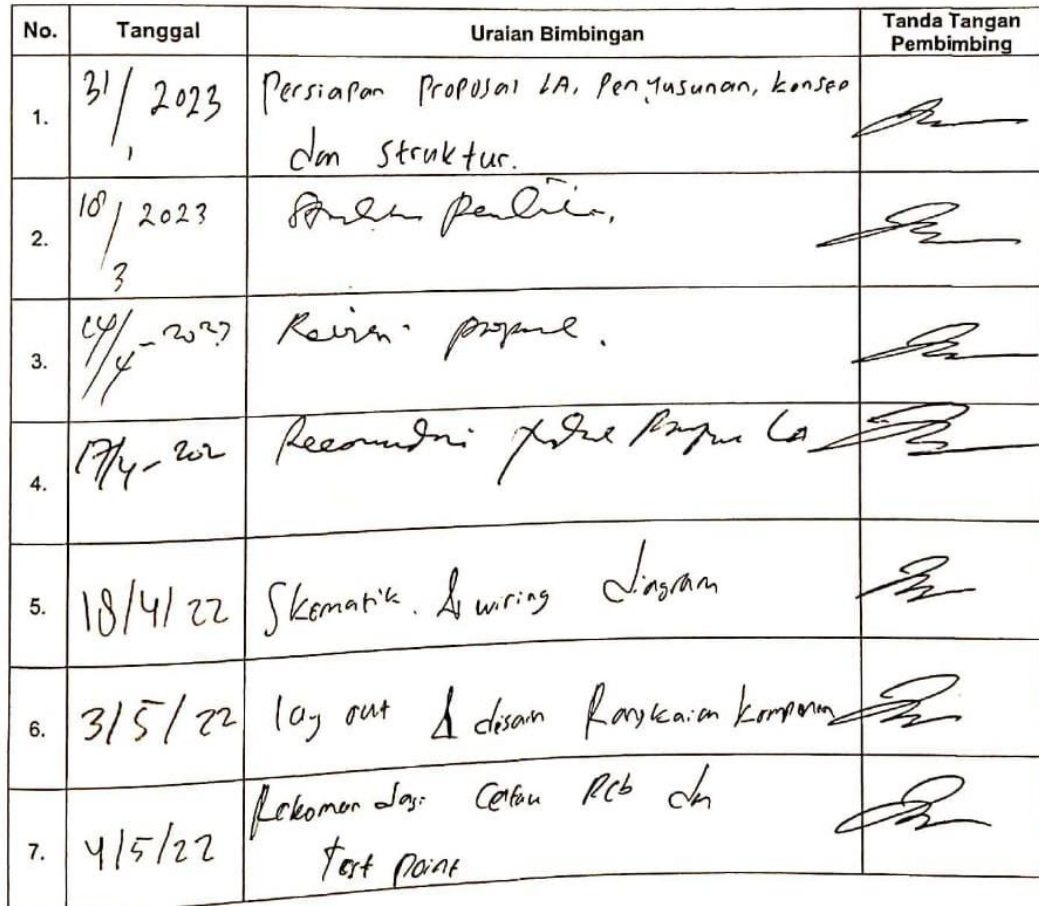 No. Tanggal Uraian Bimbingan Tanda Tangan
Pembimbing
1. 31/1 2023 Persiapan Proposal LA, Penyusunan, konsep
dan struktur.
2. 18/3 2023
3. 14/4-2023 Revisi proposal.
4. 17/4-202 proposal LA
5. 18/4/22 Skematik. & wiring diagram
6. 3/5/22 lay out & disain Rangkaian komponen
7. 4/5/22 Rekomendasi Cetak PCB dan
Test point